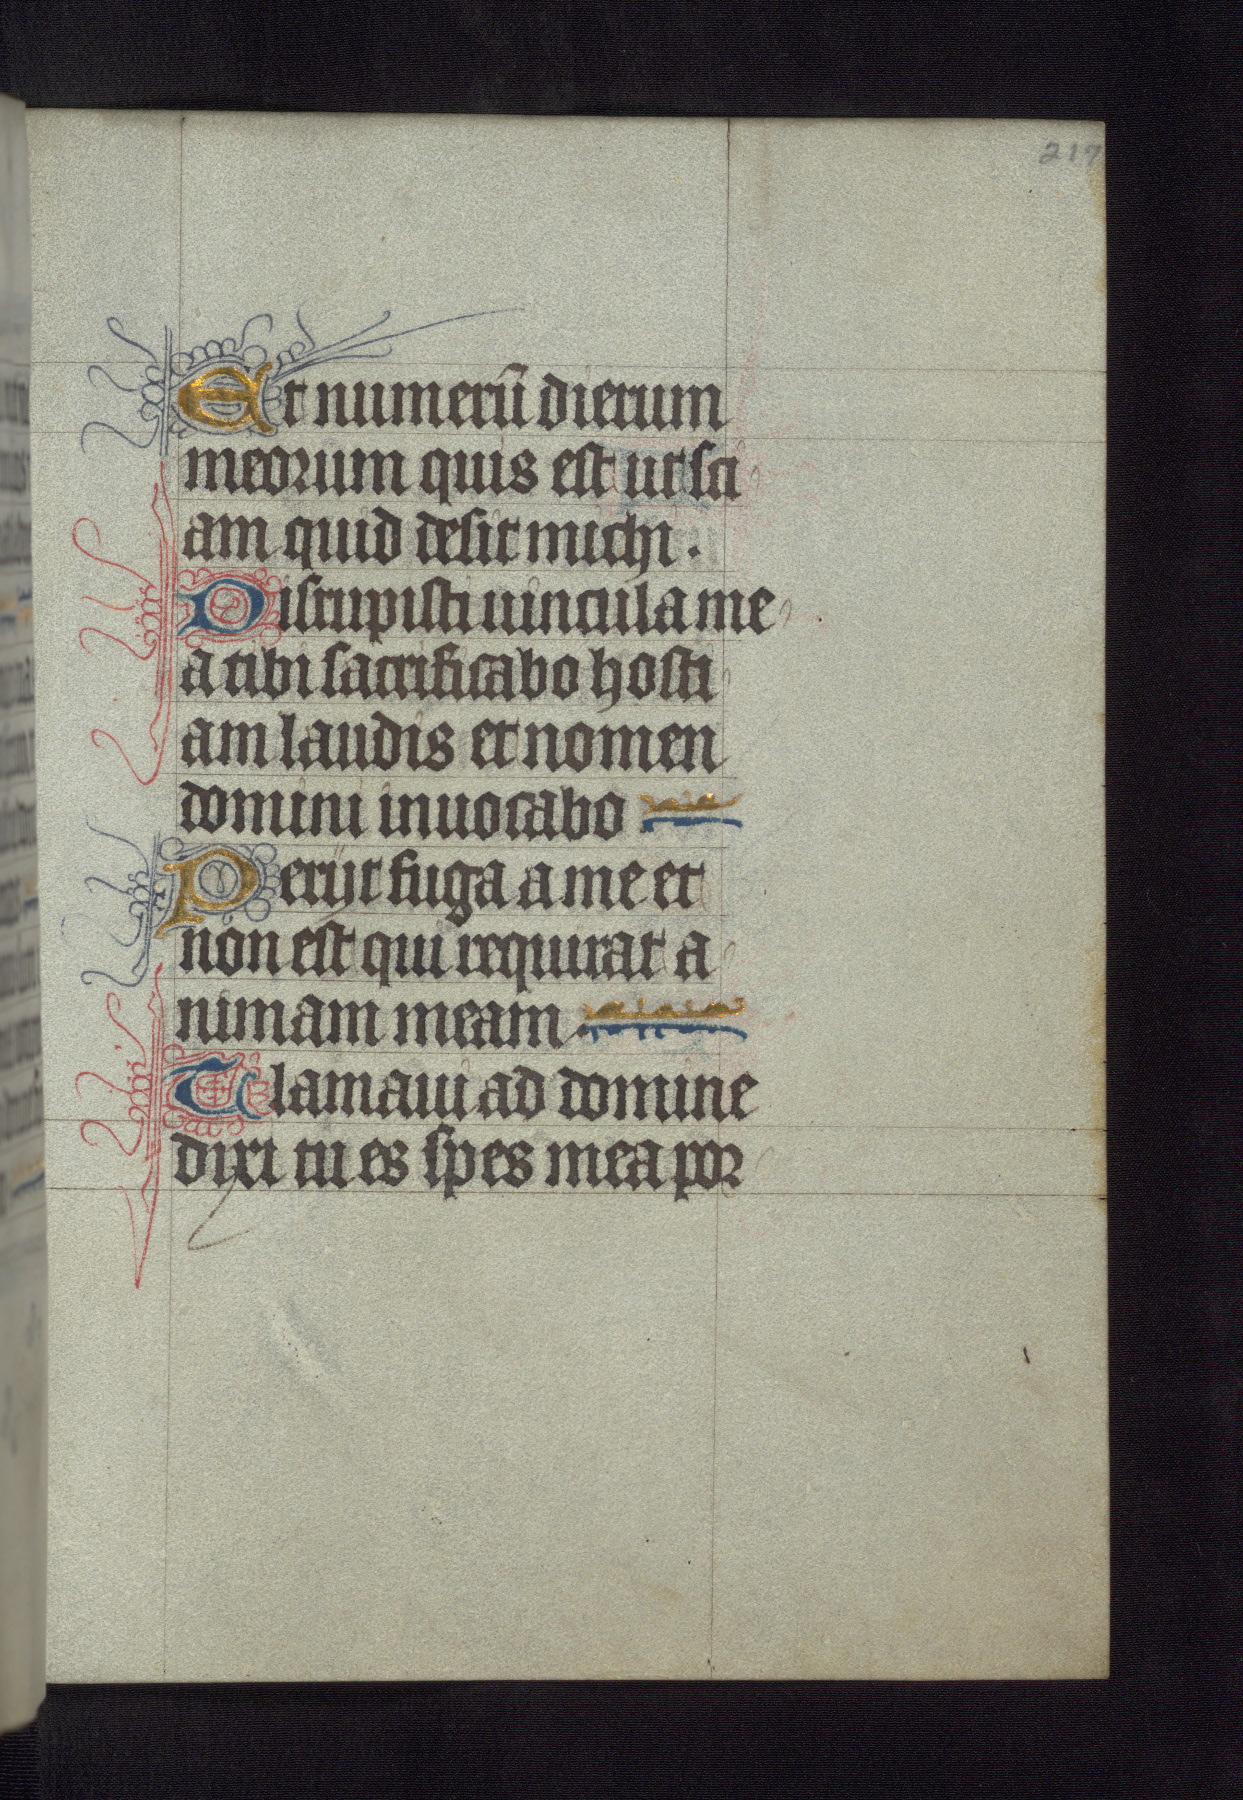 217
Et numerū dierum
meorum quis est ut sci
am quid desit michi .
Disrupisti uincula me
a tibi sacrificabo hosti
am laudis et nomen
domini inuocabo
Perijt fuga a me et
non est qui requirat a
nimam meam .
Clamaui ad domine
dixi tu es spes mea por